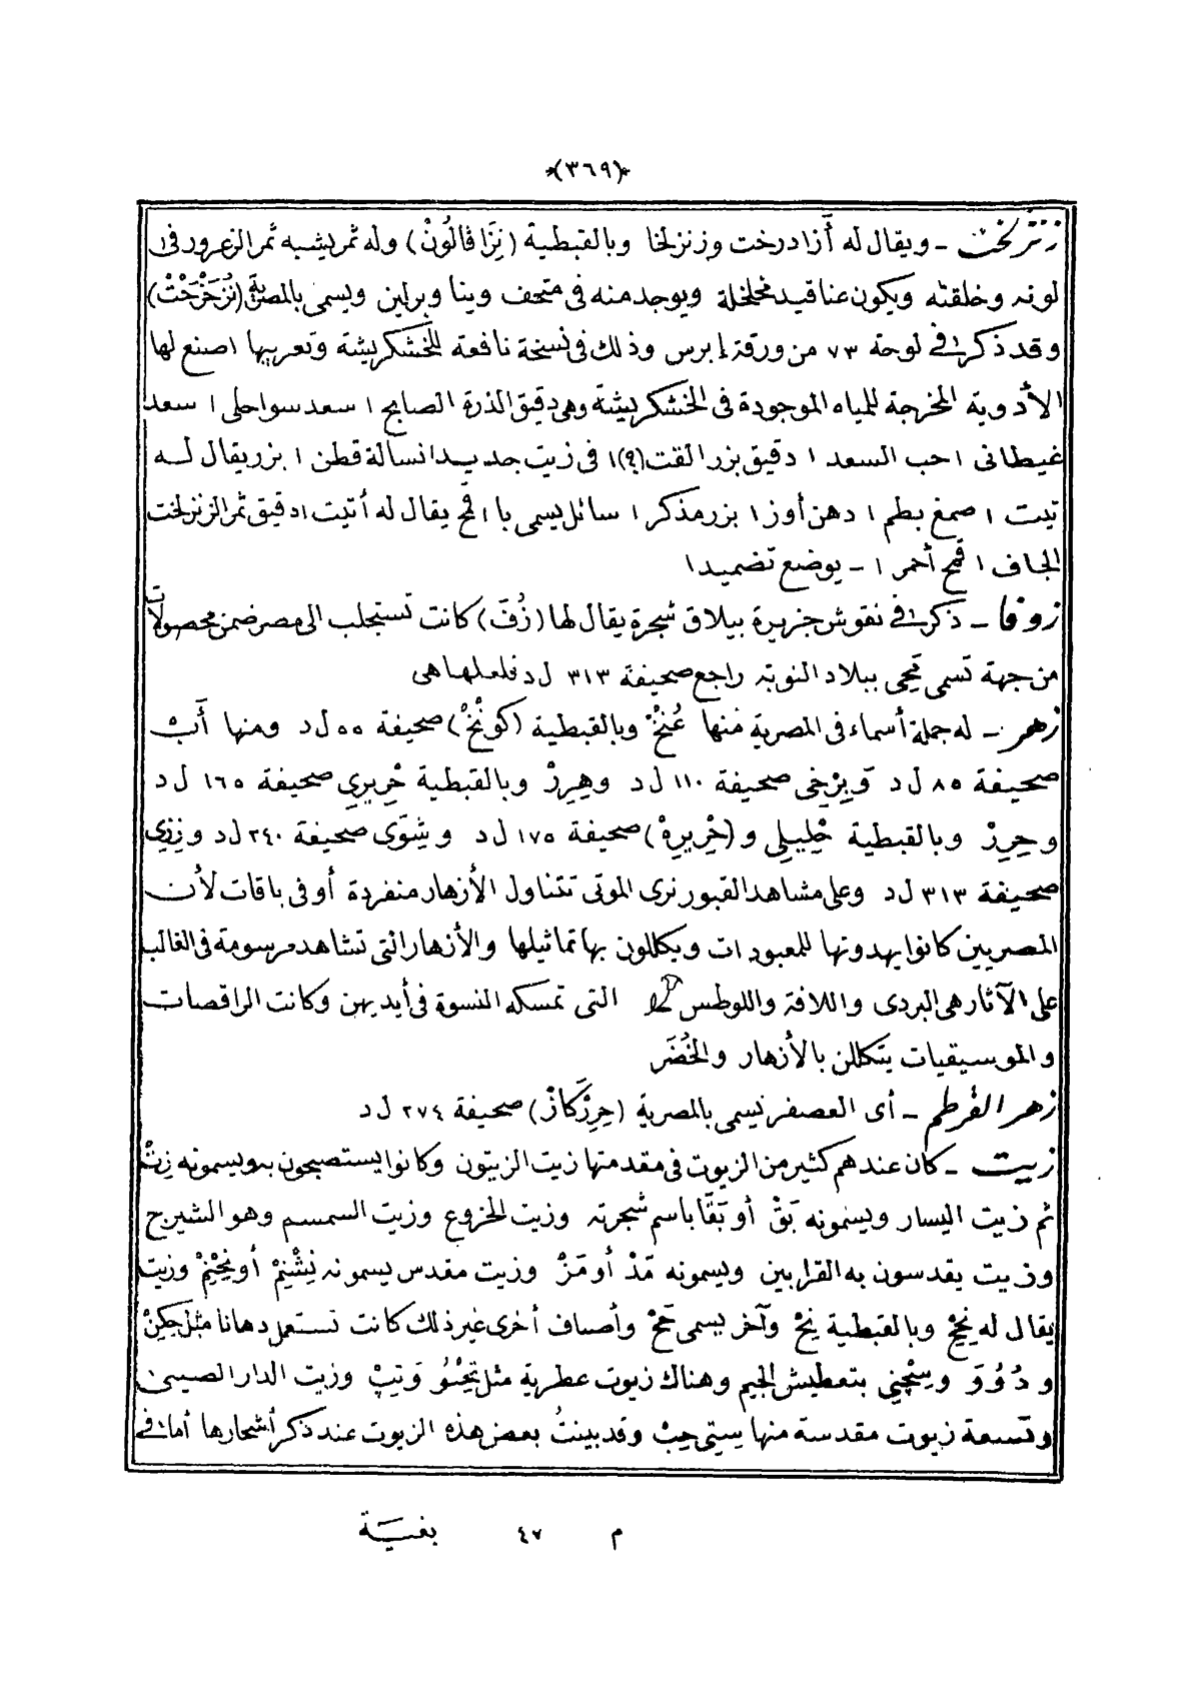 ﴿٣٦٩﴾
زنزلخت ــ ويقال له أزادرخت وزنزلخا وبالقبطية (نِزَافَالُونْ) وله ثمر يشبه ثمر الزعرور فى
لونه وخلقته ويكون عناقيد مخلخلة ويوجد منه فى متحف وينا وبرلين ويسمى بالمصرية (نُزْخَزْخَتْ)
وقد ذكر فى لوحة ٧٣ من ورقة إبرس وذلك فى نسخة نافعة للخشكريشة وتعريبها اصنع لها
الأدوية المخرجة للمياه الموجودة فى الخشكريشة وهى دقيق الذرة الصابح ١ سعد سواحلى ١ سعد
غيطانى ١ حب السعد ١ دقيق بزر القت (؟) ١ فى زيت جديد ١ نسالة قطن ١ بزر يقال له
تيت ١ صمغ بطم ١ دهن أوز ١ بزر مذكر ١ سائل يسمى با ١ قمح يقال له أتيت ١ دقيق ثمر الزنزلخت
الجاف ١ قمح أحمر ١ ــ يوضع تضميدا
زوفا ــ ذكر فى نقوش جزيرة بيلاق شجرة يقال لها (زُفَ) كانت تستجلب الى مصر ضمن محصولات
من جهة تسمى قمحى ببلاد النوبة راجع صحيفة ٣١٣ ل د فلعلها هى
زهر ــ له جملة أسماء فى المصرية منها عُنخْ وبالقبطية (كونْخْ) صحيفة ٥٥ ل د ومنها أَبْ
صحيفة ٨٥ ل د وَبِرْخى صحيفة ١١٠ ل د وهِرِرْ وبالقبطية خْرِيرِى صحيفة ١٦٥ ل د
وحِرِرْ وبالقبطية خْلِيلِى و (خْرِيرِهْ) صحيفة ١٧٥ ل د وشِوَى صحيفة ٢٤٠ ل د وزِزِى
صحيفة ٣١٣ ل د وعلى مشاهد القبور نرى الموتى تتناول الأزهار منفردة أو فى باقات لأن
المصريين كانوا يهدونها للمعبودات ويكللون بها تماثيلها والأزهار التى تشاهد مرسومة فى الغالب
على الآثار هى البردى واللافة واللوطس التى تمسكه النسوة فى أيديهن وكانت الراقصات
والموسيقيات يتكللن بالأزهار والخُضَر
زهر القرطم ــ أى العصفر يسمى بالمصرية (حِرِزْكَازْ) صحيفة ٢٧٤ ل د
زيت ــ كان عندهم كثير من الزيوت فى مقدمتها زيت الزيتون وكانوا يستصبحون به ويسمونه زِتْ
ثم زيت اليسار ويسمونه بَقْ أو بَقَا باسم شجرته وزيت الخروع وزيت السمسم وهو الشيرج
وزيت يقدسون به القرابين ويسمونه مَدْ أو مَرْ وزيت مقدس يسمونه نِشْنِمْ أو نِخْنِمْ وزيت
يقال له نِحِحْ وبالقبطية نِحْ وآخر يسمى حَمْ وأصناف أخرى غير ذلك كانت تستعمل دهانا مثل حَكِنْ
و دُوُوَ وسِجْنِى بتعطيش الجيم وهناك زيوت عطرية مثل تِحْنُوُ وَتِبْ وزيت الدار الصينى
وتسعة زيوت مقدسة منها سِتِى حِبْ وقد بينتُ بعض هذه الزيوت عند ذكر أشجارها أما فى
م ٤٧ بغية